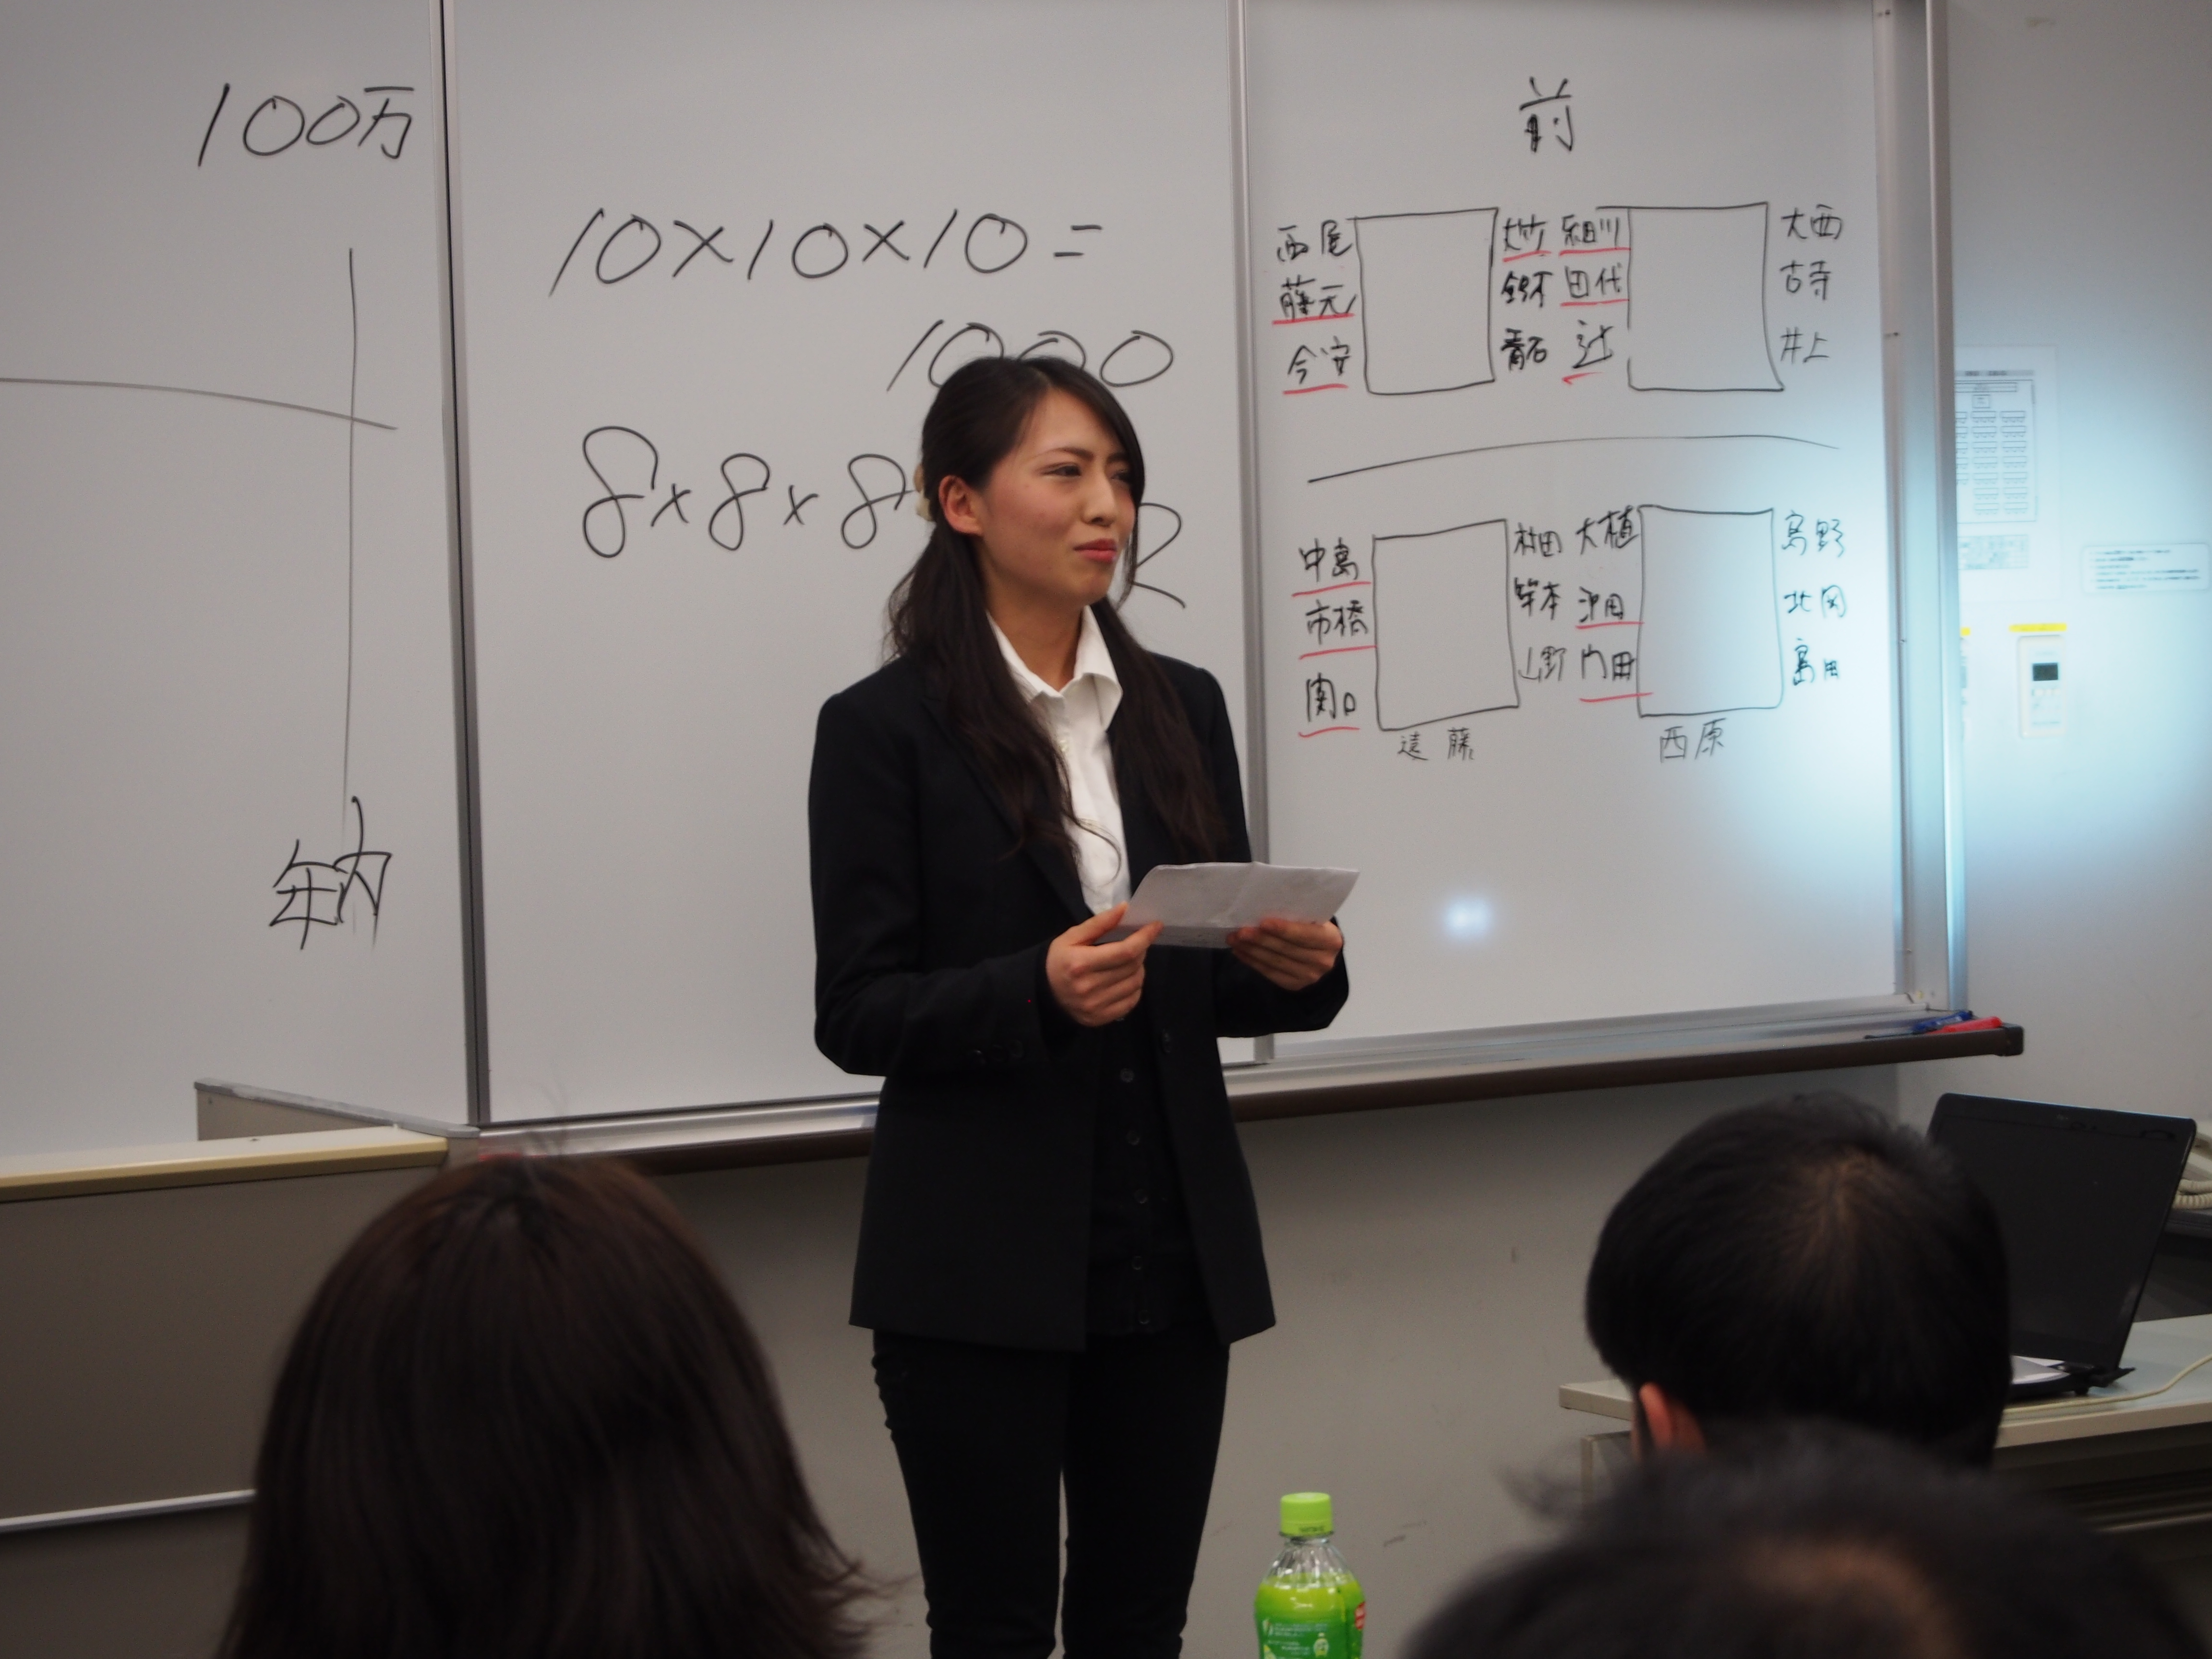 100万
年内
10×10×10=
1000
8×8×8
2
前
西尾
藤元
今安
大竹 細川
鈴木 田代
青石 辻
大西
古寺
井上
中島
市橋
関口
村田 大植
竿本 沖田
山野 内田
鳥野
北岡
島田
遠藤
西原